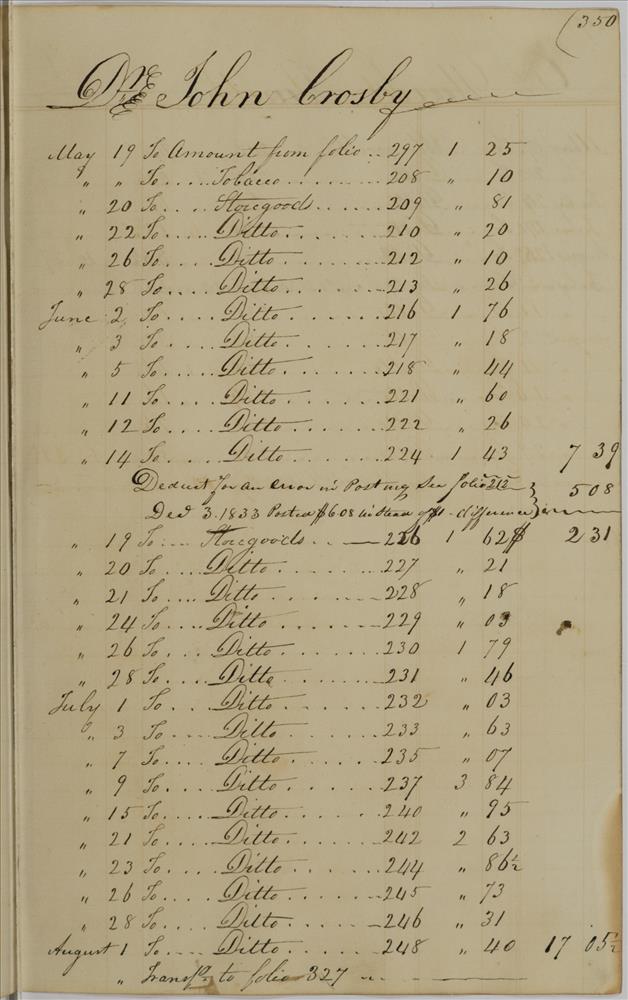 (350
Dr. John Crosby
May 19 To Amount from folio .. 297 1 25
" " To ..... Tobacco ....... 208 " 10
" 20 To .... Storegoods ...... 209 " 81
" 22 To ..... Ditto ....... 210 " 20
" 26 To .... Ditto ....... 212 " 10
" 28 To .... Ditto ....... 213 " 26
June 2 To .... Ditto ....... 216 1 76
" 3 To .... Ditto ....... 217 " 18
" 5 To .... Ditto ....... 218 " 44
" 11 To .... Ditto ....... 221 " 60
" 12 To .... Ditto ....... 222 " 26
" 14 To .... Ditto ....... 224 1 43 7 39
Deduct for an error in Posting See folio 212 } 5 08
Decr 3. 1833 Posted $6 08 instead of $1 - difference }
" 19 To .... Storegoods .. 226 1 62 $ 2 31
" 20 To .... Ditto ....... 227 " 21
" 21 To .... Ditto ....... 228 " 18
" 24 To .... Ditto ....... 229 " 03
" 26 To .... Ditto ....... 230 1 79
" 28 To .... Ditto ....... 231 " 46
July 1 To .... Ditto ....... 232 " 03
" 3 To .... Ditto ....... 233 " 63
" 7 To .... Ditto ....... 235 " 07
" 9 To .... Ditto ....... 237 3 84
" 15 To .... Ditto ....... 240 " 95
" 21 To .... Ditto ....... 242 2 63
" 23 To .... Ditto ....... 244 " 86½
" 26 To .... Ditto ....... 245 " 73
" 28 To .... Ditto ....... 246 " 31
August 1 To .... Ditto ....... 248 " 40 17 05½
" Transfr to folio 327